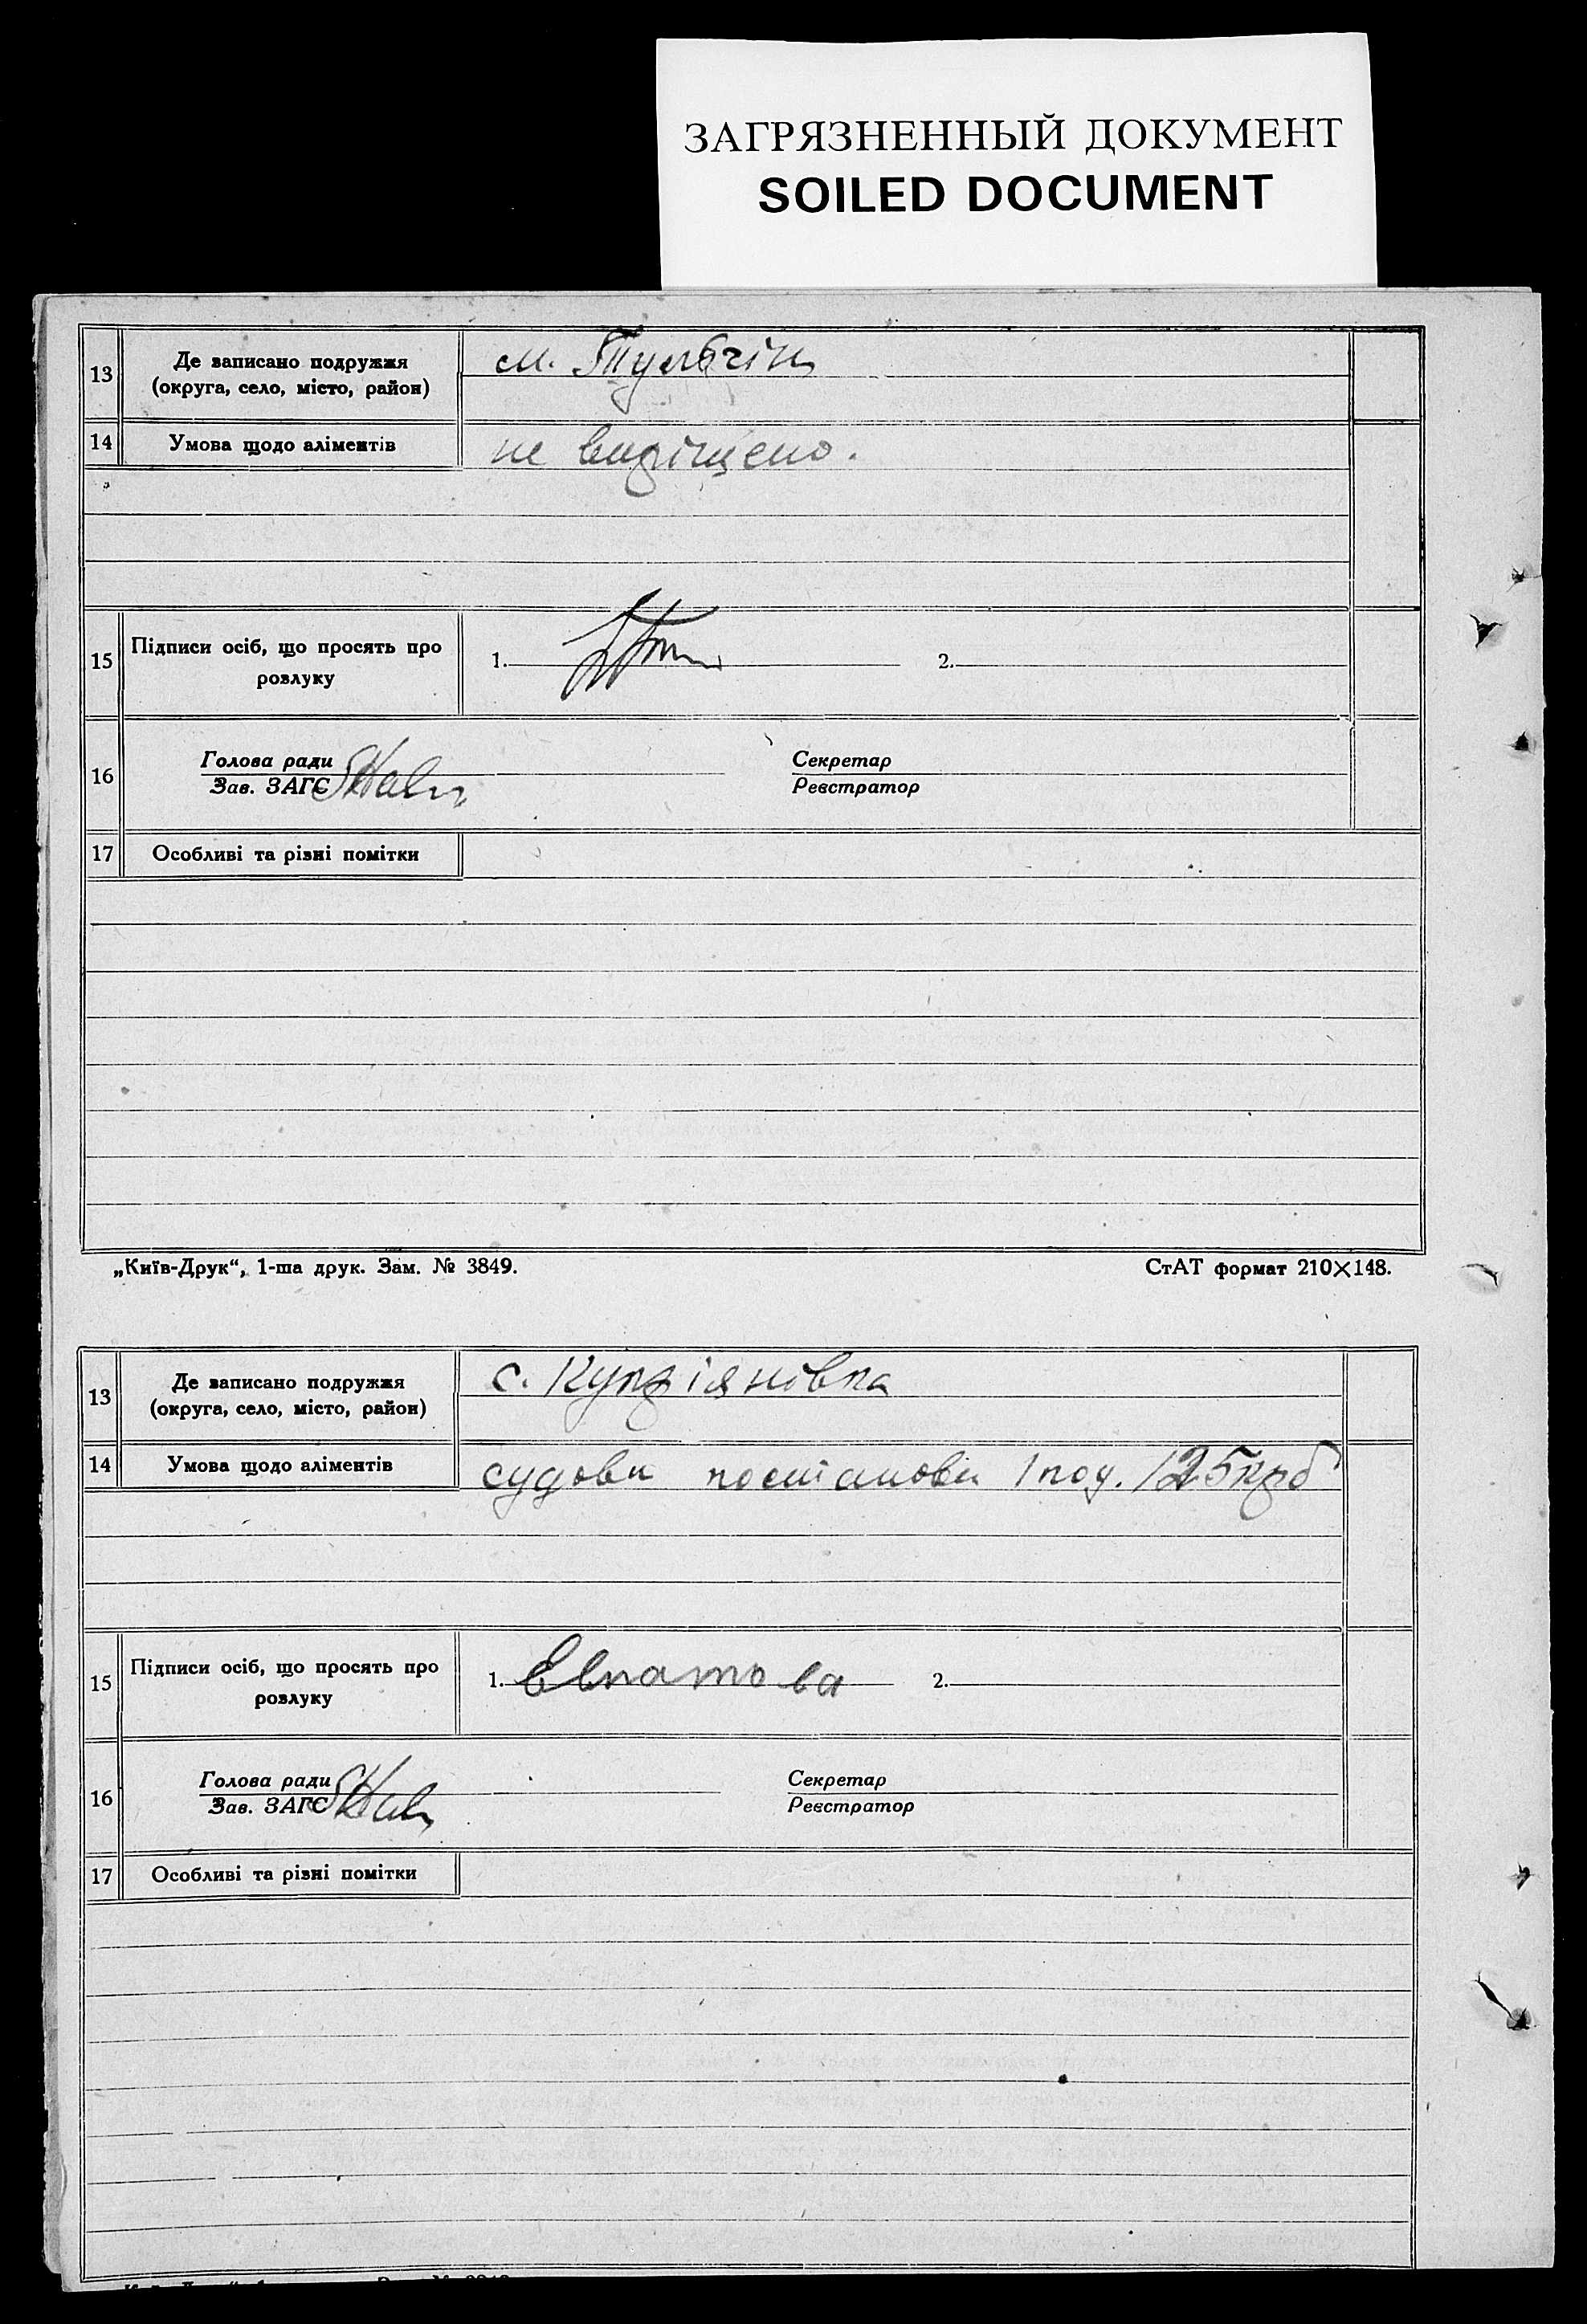 ЗАГРЯЗНЕННЫЙ ДОКУМЕНТ
SOILED DOCUMENT
13 Де записано подружжя (округа, село, місто, район) м. Тульчін
14 Умова щодо аліментів не вирішено.
15 Підписи осіб, що просять про розлуку 1. 2.
16 Голова ради Секретар
Зав. ЗАГС Реєстратор
17 Особливі та різні помітки
„Київ-Друк“, 1-ша друк. Зам. № 3849. СтАТ формат 210×148.
13 Де записано подружжя (округа, село, місто, район) с. Курдіянівка
14 Умова щодо аліментів судова постанова 1 под. 125 крб
15 Підписи осіб, що просять про розлуку 1. 2.
16 Голова ради Секретар
Зав. ЗАГС Реєстратор
17 Особливі та різні помітки